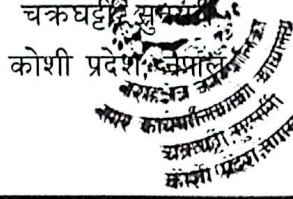 चक्रघट्टी, सुनसरी
कोशी प्रदेश, नेपाल
नगर कार्यपालिकाको कार्यालय
चक्रघट्टी, सुनसरी
कोशी प्रदेश, नेपाल